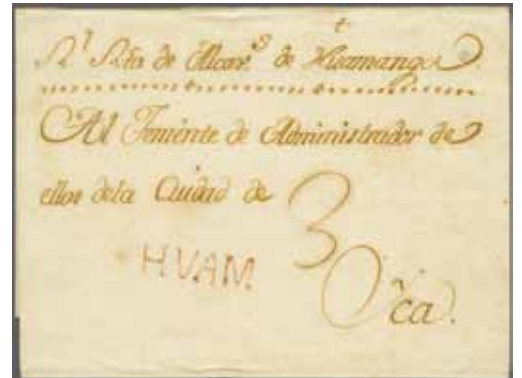 Rl Rta de Alcavs de Huamanga
Al Teniente de Administrador de
ellos dela Ciudad de
3
HUAM
Yca.